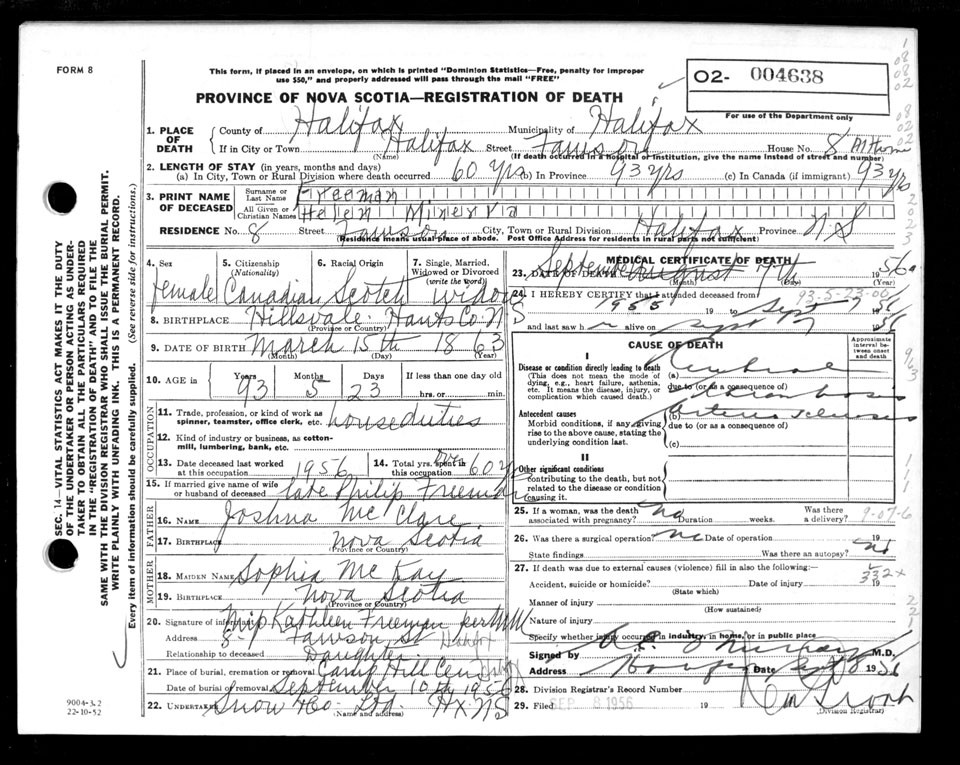 FORM 8
This form, if placed in an envelope, on which is printed "Dominion Statistics—Free, penalty for improper
use $50," and properly addressed will pass through the mail "FREE"
O2- 004638
For use of the Department only
PROVINCE OF NOVA SCOTIA—REGISTRATION OF DEATH
1. PLACE OF DEATH { County of Halifax Municipality of Halifax
If in City or Town Halifax (Name) Street Tawson House No. 8
(If death occurred in a hospital or institution, give the name instead of street and number)
2. LENGTH OF STAY (in years, months and days)
(a) In City, Town or Rural Division where death occurred 60 yrs (b) In Province 93 yrs (c) In Canada (if immigrant) 93 yrs
3. PRINT NAME OF DECEASED { Surname or Last Name Freeman
All Given or Christian Names Helen Minerva
RESIDENCE No. 8 Street Tawson City, Town or Rural Division Halifax Province N S
(Residence means usual place of abode. Post Office Address for residents in rural parts not sufficient)
4. Sex female
5. Citizenship (Nationality) Canadian
6. Racial Origin Scotch
7. Single, Married, Widowed or Divorced (write the word) widow
8. BIRTHPLACE Hillsvale Hants Co. N S
(Province or Country)
9. DATE OF BIRTH March 15th 1863
(Month) (Day) (Year)
10. AGE in Years 93 Months 5 Days 23 If less than one day old
hrs. or min.
OCCUPATION
11. Trade, profession, or kind of work as spinner, teamster, office clerk, etc. houseduties
12. Kind of industry or business, as cotton-mill, lumbering, bank, etc.
13. Date deceased last worked at this occupation 1956
14. Total yrs. spent in this occupation 60 yrs
15. If married give name of wife or husband of deceased late Philip Freeman
FATHER
16. NAME Joshua McClare
17. BIRTHPLACE Nova Scotia
(Province or Country)
MOTHER
18. MAIDEN NAME Sophia McKay
19. BIRTHPLACE Nova Scotia
(Province or Country)
20. Signature of informant Miss Kathleen Freeman per
Address 8 - Tawson St
Relationship to deceased Daughter
21. Place of burial, cremation or removal Camp Hill Cem
Date of burial or removal September 10th 1956
22. UNDERTAKER Snow & Co. Ltd. Hx NS
(Name and address)
MEDICAL CERTIFICATE OF DEATH
23. DATE OF DEATH September August 7th 1956
(Month) (Day)
24. I HEREBY CERTIFY that I attended deceased from
93-5-23-00
1955 19 to Sept 7 1956
and last saw h alive on Sept 19 56
CAUSE OF DEATH
Approximate interval between onset and death
I
Disease or condition directly leading to death (a) Cerebral
(This does not mean the mode of dying, e.g., heart failure, asthenia, etc. It means the disease, injury, or complication which caused death.)
due to (or as a consequence of)
Antecedent causes (b) Arterio sclerosis
Morbid conditions, if any, giving rise to the above cause, stating the underlying condition last.
due to (or as a consequence of)
(c)
II
Other significant conditions contributing to the death, but not related to the disease or condition causing it.
25. If a woman, was the death associated with pregnancy? no Duration weeks. Was there a delivery?
9-07-6
26. Was there a surgical operation? no Date of operation 19
State findings Was there an autopsy? no
27. If death was due to external causes (violence) fill in also the following:
332x
Accident, suicide or homicide? Date of injury 19
(State which)
Manner of injury
(How sustained)
Nature of injury
Specify whether injury occurred in industry, in home, or in public place
Signed by M.D.
Address Date, Sept 8 1956
28. Division Registrar's Record Number
29. Filed SEP 8 1956 19
(Division Registrar)
SEC. 14—VITAL STATISTICS ACT MAKES IT THE DUTY
OF THE UNDERTAKER OR PERSON ACTING AS UNDER-
TAKER TO OBTAIN ALL THE PARTICULARS REQUIRED
IN THE "REGISTRATION OF DEATH" AND TO FILE THE
SAME WITH THE DIVISION REGISTRAR WHO SHALL ISSUE THE BURIAL PERMIT.
WRITE PLAINLY WITH UNFADING INK. THIS IS A PERMANENT RECORD.
Every item of information should be carefully supplied. (See reverse side for instructions.)
9004-3.2
22-10-52